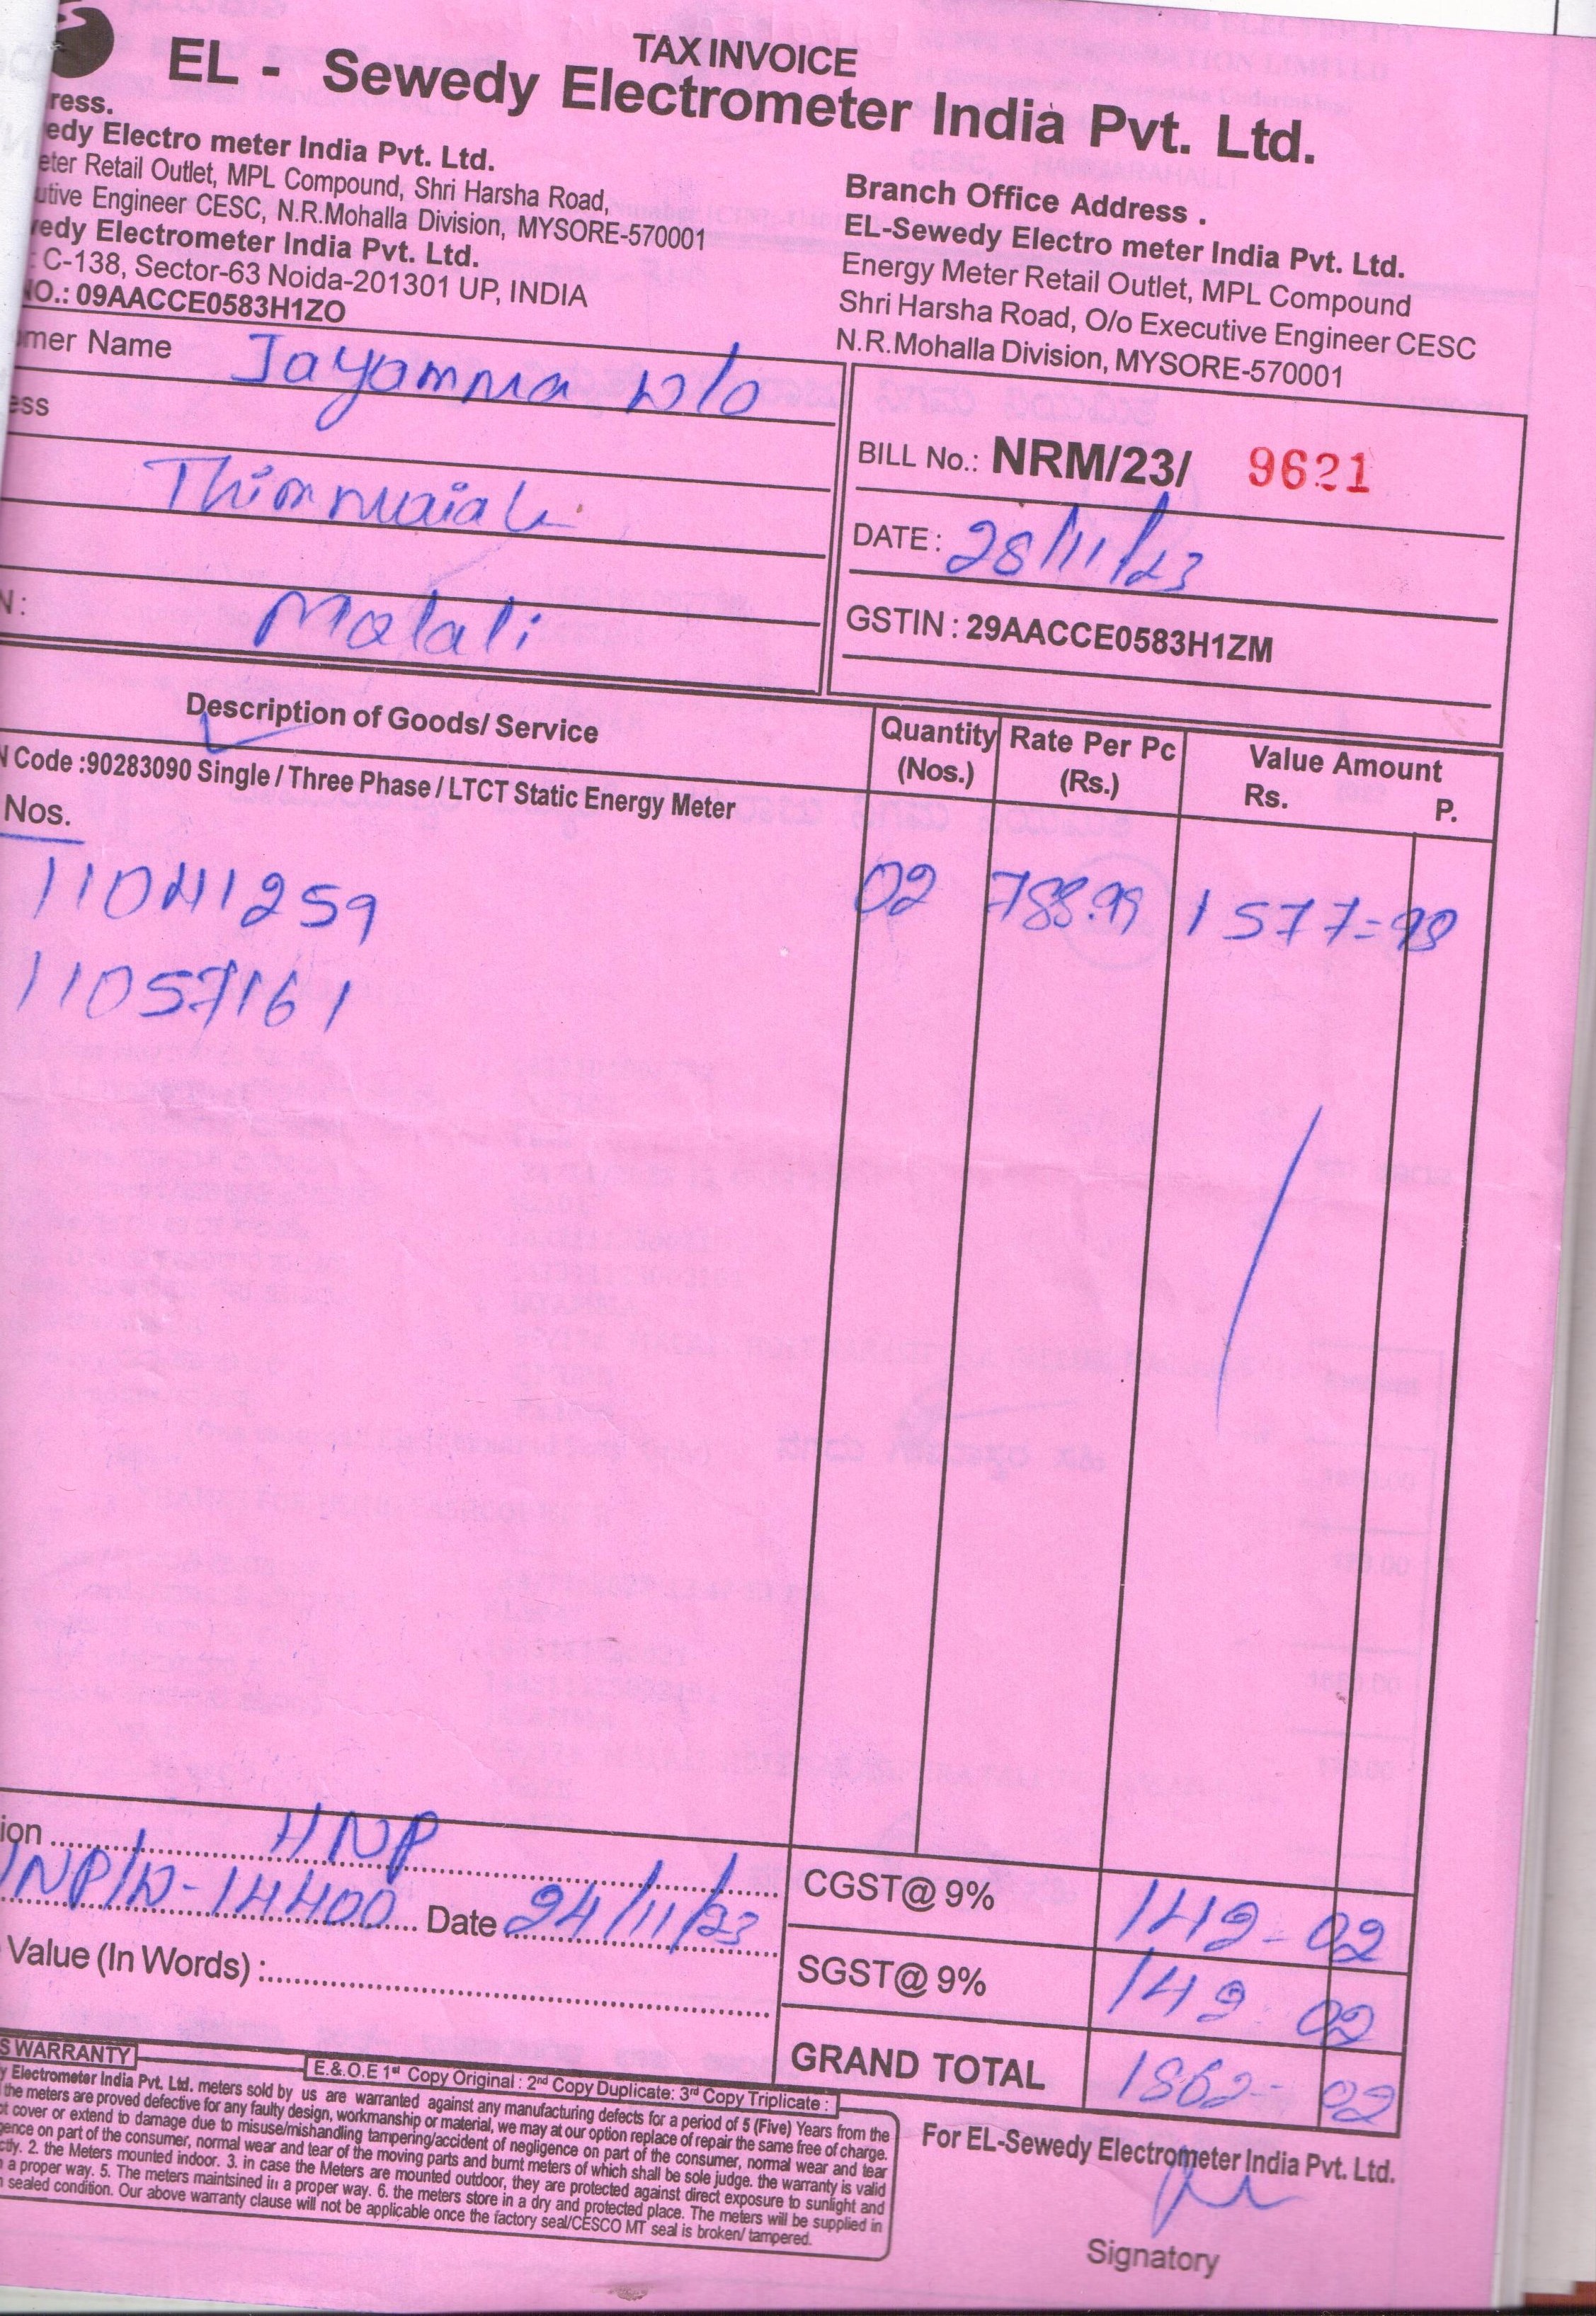 TAX INVOICE
EL - Sewedy Electrometer India Pvt. Ltd.
ress.
edy Electro meter India Pvt. Ltd.
eter Retail Outlet, MPL Compound, Shri Harsha Road,
utive Engineer CESC, N.R.Mohalla Division, MYSORE-570001
edy Electrometer India Pvt. Ltd.
: C-138, Sector-63 Noida-201301 UP, INDIA
NO.: 09AACCE0583H1ZO
Branch Office Address .
EL-Sewedy Electro meter India Pvt. Ltd.
Energy Meter Retail Outlet, MPL Compound
Shri Harsha Road, O/o Executive Engineer CESC
N.R.Mohalla Division, MYSORE-570001
omer Name Jayamma W/o
ess
Thimmaiah
N : Malali
BILL No.: NRM/23/ 9621
DATE : 28/11/23
GSTIN : 29AACCE0583H1ZM
Description of Goods/ Service
Quantity (Nos.)
Rate Per Pc (Rs.)
Value Amount
Rs. P.
N Code :90283090 Single / Three Phase / LTCT Static Energy Meter
Nos.
11041259 02 788.99 1577=98
11057161
ion HNP
HNP/W-14400 Date 24/11/23
Value (In Words) :
CGST@ 9% 142-02
SGST@ 9% 142 02
GRAND TOTAL 1862=02
S WARRANTY
E.&.O.E 1st Copy Original : 2nd Copy Duplicate: 3rd Copy Triplicate :
y Electrometer India Pvt. Ltd. meters sold by us are warranted against any manufacturing defects for a period of 5 (Five) Years from the
the meters are proved defective for any faulty design, workmanship or material, we may at our option replace of repair the same free of charge.
ot cover or extend to damage due to misuse/mishandling tampering/accident of negligence on part of the consumer, normal wear and tear
gence on part of the consumer, normal wear and tear of the moving parts and burnt meters of which shall be sole judge. the warranty is valid
ctly. 2. the Meters mounted indoor. 3. in case the Meters are mounted outdoor, they are protected against direct exposure to sunlight and
a proper way. 5. The meters maintsined in a proper way. 6. the meters store in a dry and protected place. The meters will be supplied in
sealed condition. Our above warranty clause will not be applicable once the factory seal/CESCO MT seal is broken/ tampered.
For EL-Sewedy Electrometer India Pvt. Ltd.
Signatory